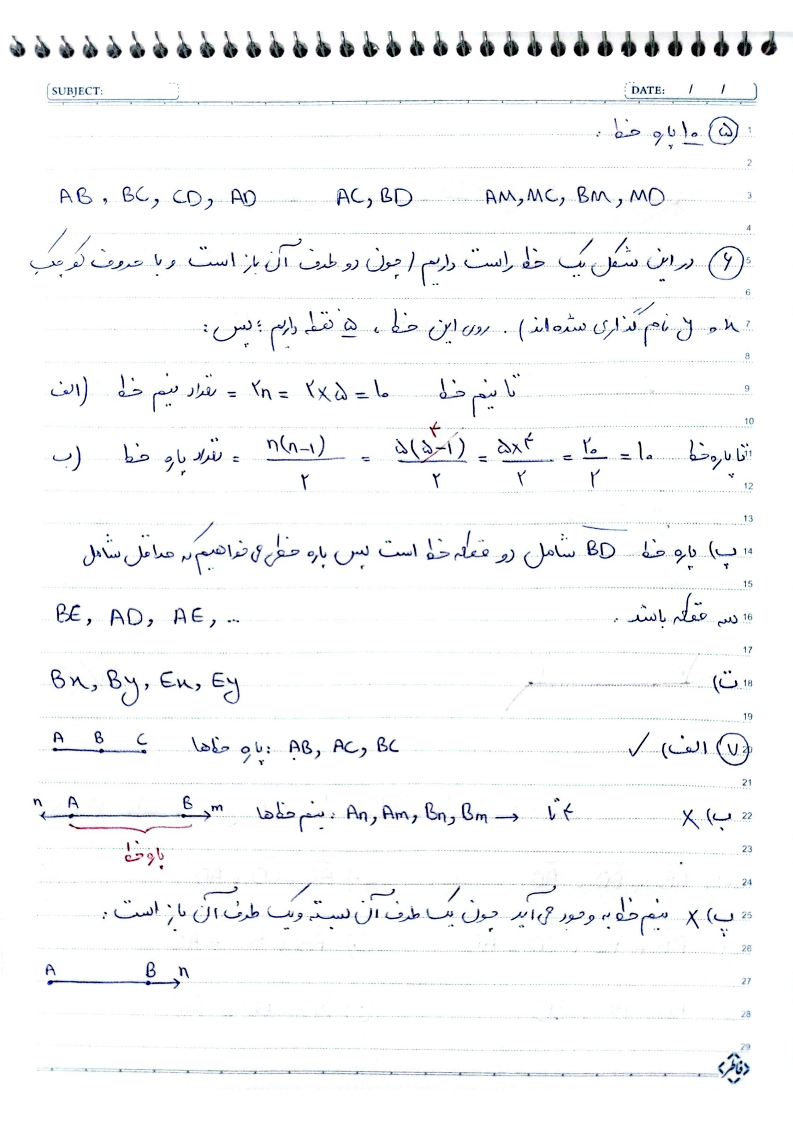 SUBJECT: DATE: / /
۵ ۱۰ پاره خط :
AB , BC, CD, AD AC, BD AM, MC, BM, MD
۶ در این شکل یک خط راست داریم (چون دو طرف آن باز است و با حروف کوچک
x و y نام گذاری شده‌اند). روی این خط ، ۵ نقطه داریم ؛ پس :
الف) تعداد نیم خط = ۲n = ۲×۵ = ۱۰ تا نیم خط
ب) تعداد پاره خط = n(n-1)/۲ = ۵(۵-۱)/۲ = ۵×۴/۲ = ۲۰/۲ = ۱۰ تا پاره خط
۴
پ) پاره خط BD شامل دو قطعه خط است پس پاره خطی می‌خواهیم که حداقل شامل
سه قطعه باشد . BE, AD, AE, ...
ت) Bx, By, Ex, Ey
۷ الف) ✓ پاره خط‌ها : AB, AC, BC A B C
ب) X نیم خط‌ها : An, Am, Bn, Bm → ۴ تا n A B m
پاره خط
پ) X نیم خط به وجود می‌آید چون یک طرف آن بسته و یک طرف آن باز است :
A B n
فاطر
1
2
3
4
5
6
7
8
9
10
11
12
13
14
15
16
17
18
19
20
21
22
23
24
25
26
27
28
29